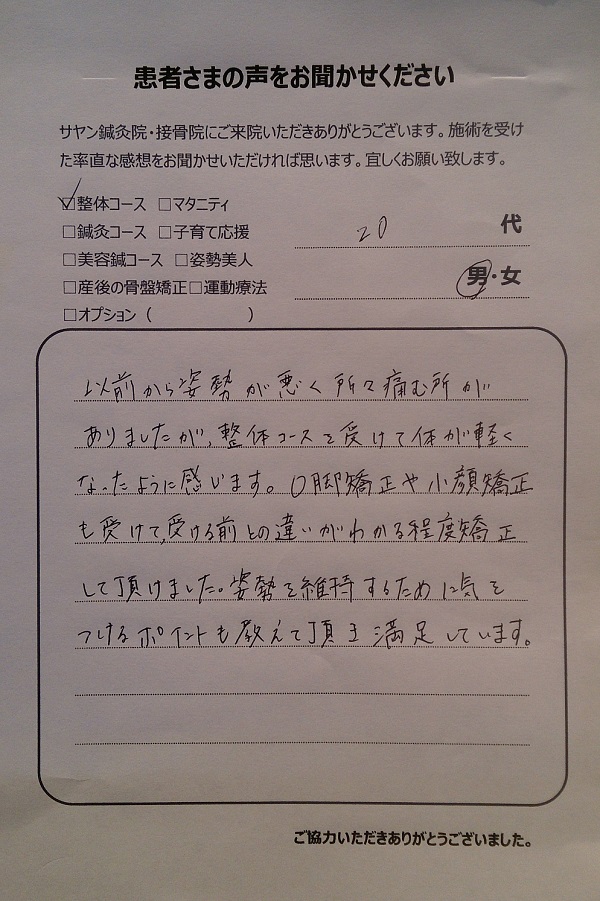 患者さまの声をお聞かせください
サヤン鍼灸院・接骨院にご来院いただきありがとうございます。施術を受け
た率直な感想をお聞かせいただければ思います。宜しくお願い致します。
☑整体コース □マタニティ
□鍼灸コース □子育て応援
□美容鍼コース □姿勢美人
□産後の骨盤矯正□運動療法
□オプション（ ）
20 代
男・女
以前から姿勢が悪く所々痛む所が
ありましたが、整体コースを受けて体が軽く
なったように感じます。O脚矯正や小顔矯正
も受けて、受ける前との違いがわかる程度矯正
して頂けました。姿勢を維持するために気を
つけるポイントも教えて頂き満足しています。
ご協力いただきありがとうございました。